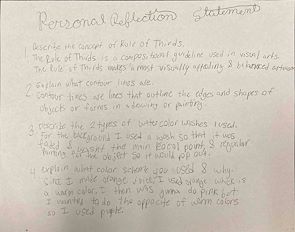 Personal Reflection Statement
1. Describe the concept of Rule of Thirds.
The Rule of Thirds is a compositional guideline used in visual arts.
The Rule of Thirds makes a most visually appealing & balanced artwork
2. Explain what contour lines are.
Contour lines are lines that outline the edges and shapes of
objects or forms in a drawing or painting
3. Describe the 2 types of watercolor washes I used.
For the background I used a wash so that it was
faded & wasnt the main focal point, & regular
painting for the object so it would pop out.
4. Explain what color scheme you used & why.
Since I made orange I used orange which is
a warm color. I then was gonna do pink but
I wanted to do the opposite of warm colors
so I used purple.